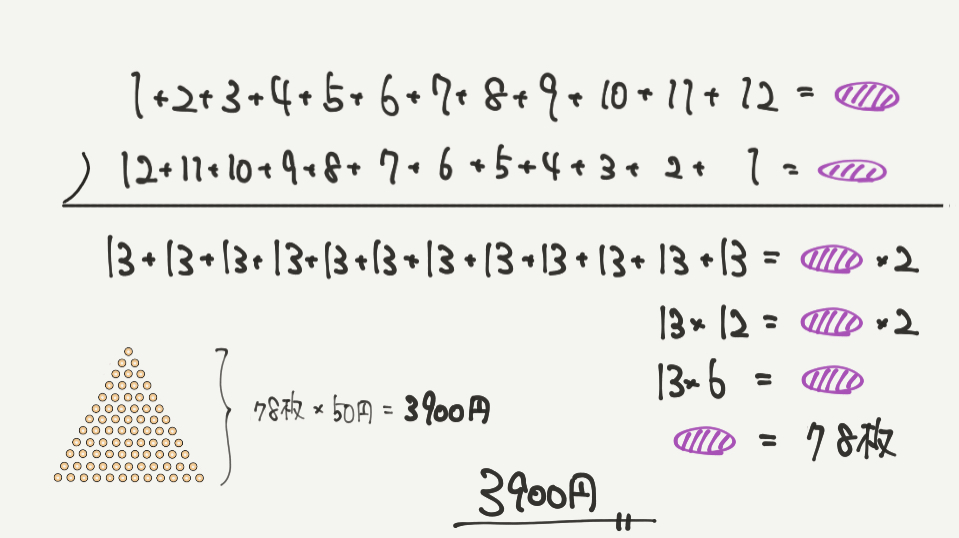 1+2+3+4+5+6+7+8+9+10+11+12=
12+11+10+9+8+7+6+5+4+3+2+1=
13+13+13+13+13+13+13+13+13+13+13+13= ×2
13×12= ×2
13×6=
=78枚
78枚×50円=3900円
3900円